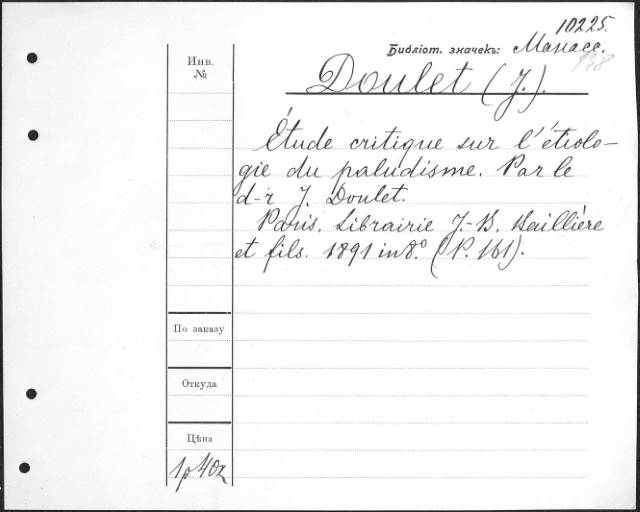 10225.
Библіот. значекъ: Манасс.
938
Инв.
№
Doulet (J.).
Étude critique sur l'étiolo-
gie du paludisme. Par le
d-r J. Doulet.
Paris. Librairie J.-B. Baillière
et fils. 1891 in 8.° (P. 161).
По заказу
Откуда
Цѣна
1р 40к